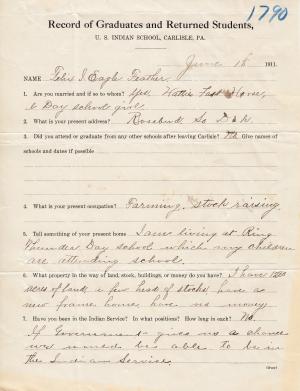 1790
Record of Graduates and Returned Students,
U. S. INDIAN SCHOOL, CARLISLE, PA.
June 16 1911.
NAME Felix I. Eagle Feather
1. Are you married and if so to whom? Yes, Hattie Fast Horse,
a Day school girl.
2. What is your present address? Rosebud So Dak
3. Did you attend or graduate from any other schools after leaving Carlisle? No Give names
of schools and dates if possible
4. What is your present occupation? Farming, stock raising
5. Tell something of your present home I am living at Ring
Thunder Day school which my children
are attending school.
6. What property in the way of land, stock, buildings, or money do you have? I have
acres of land, a few head of stock, have a
new frame home, have no money
7. Have you been in the Indian Service? In what positions? How long in each? No.
If Government gives me a chance
be able to be in
the Indian Service.
(Over)